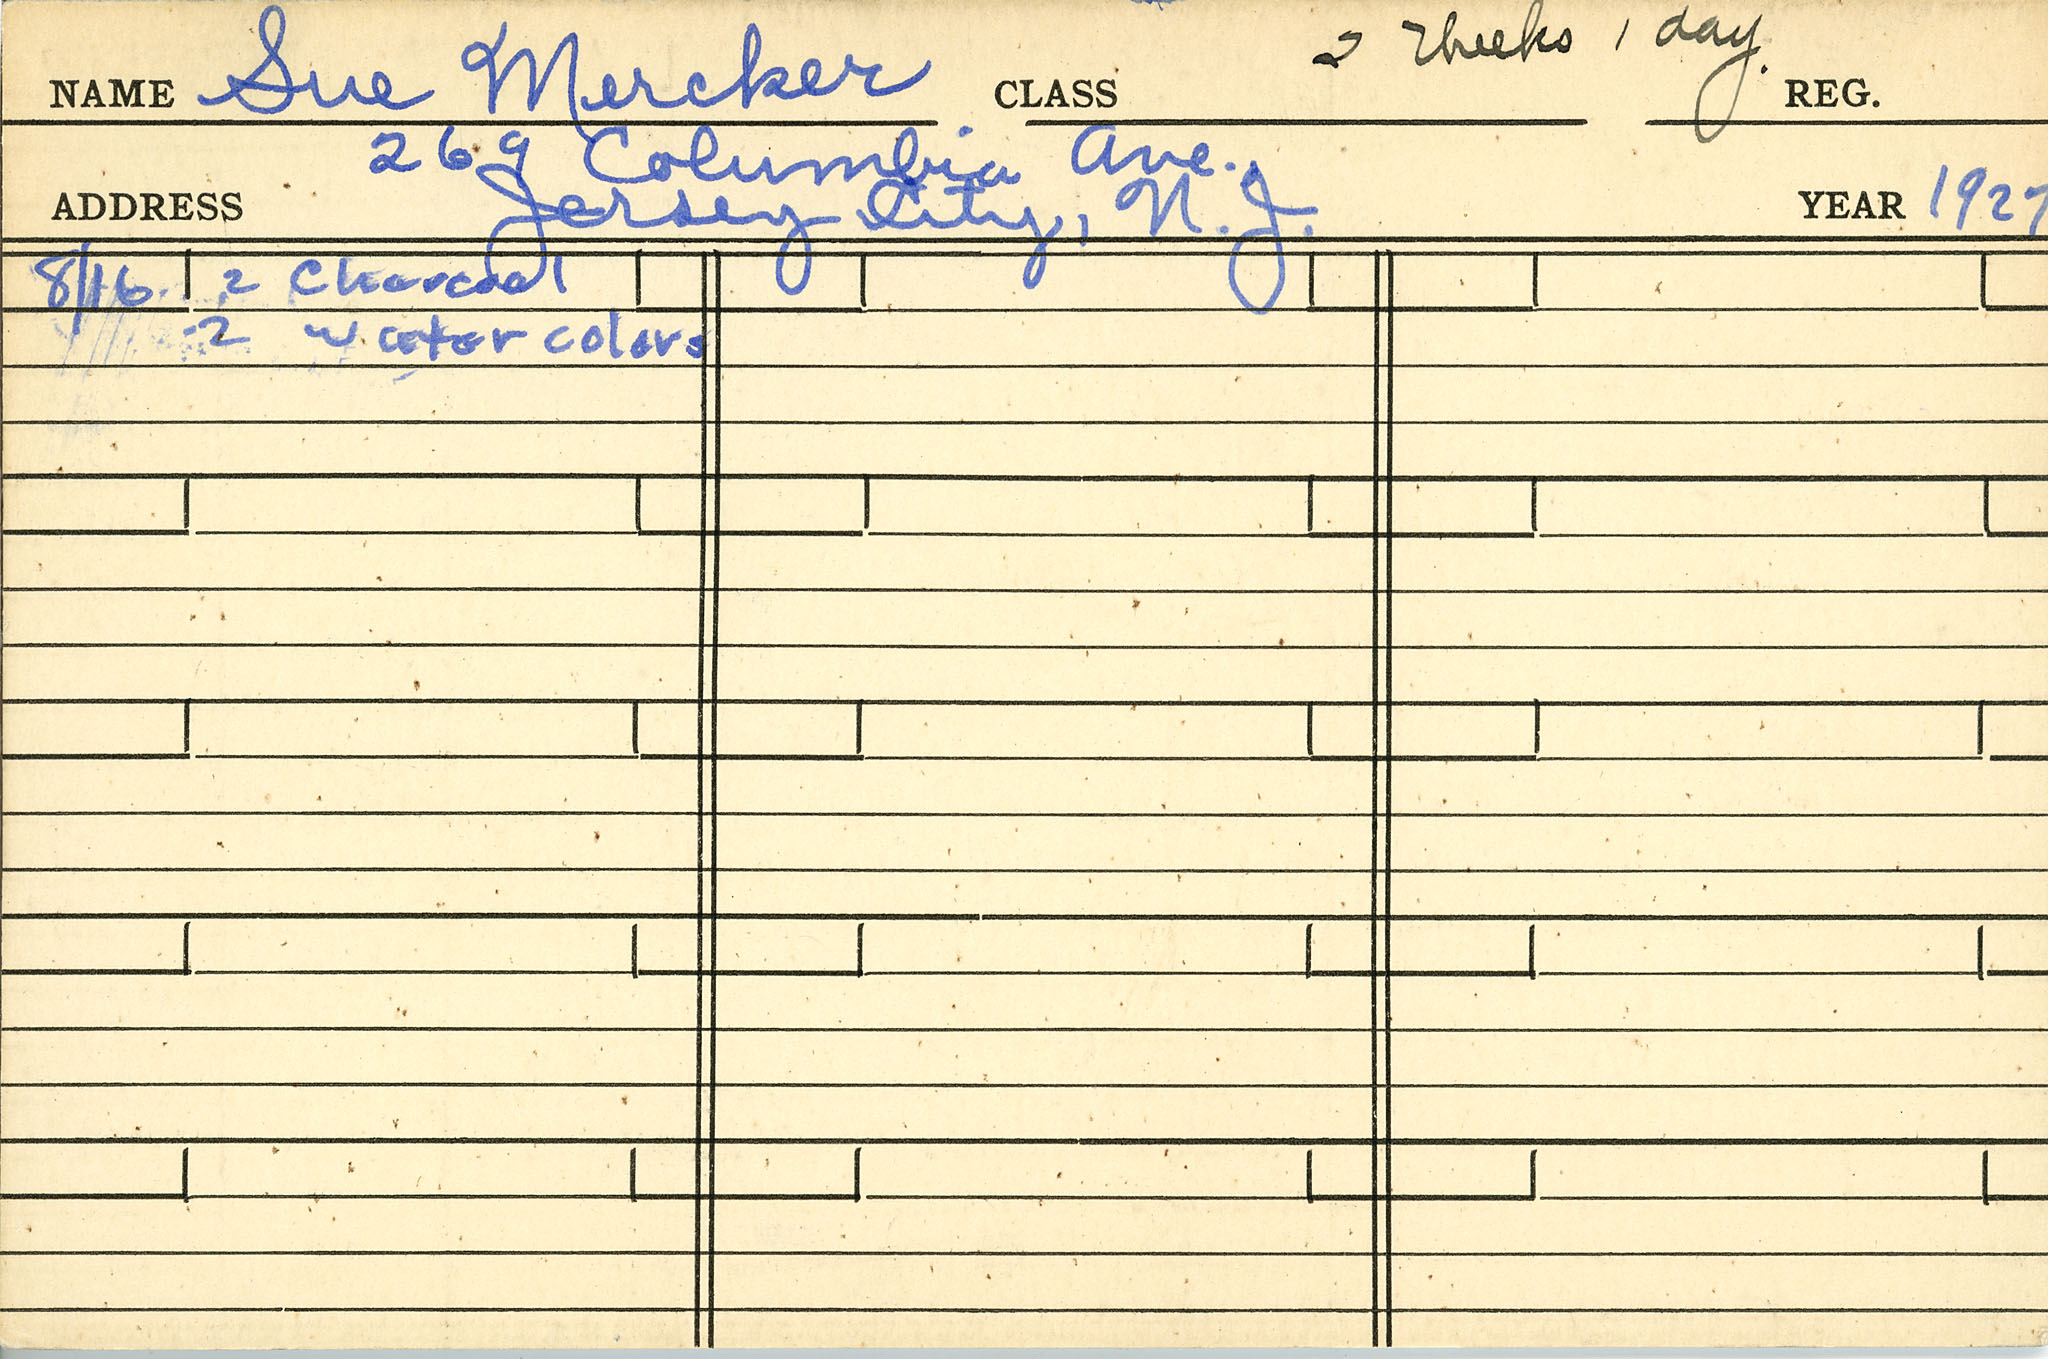 NAME Sue Mercker CLASS 2 Weeks 1 day. REG.
269 Columbia Ave.,
ADDRESS Jersey City, N.J. YEAR 1927
8/16. 2 Charcoal
2 water colors